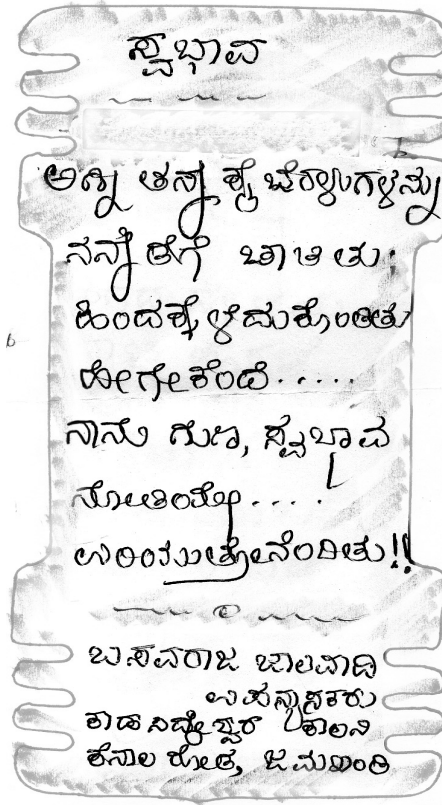 ಸ್ವಭಾವ
ಅಗ್ನಿ ತನ್ನ ಕೈ ಬೆರಳುಗಳನ್ನು
ನನ್ನೆಡೆಗೆ ಚಾಚಿತು;
ಹಿಂದಕ್ಕೆಳೆದುಕೊಂಡಿತು
ಹೀಗೇಕೆಂದೆ.....
ನಾನು ಗುಣ, ಸ್ವಭಾವ
ನೋಡಿಯೇ....
ಉರಿಯುತ್ತೇನೆಂದಿತು!!
ಬಸವರಾಜ ಜಾಲವಾದಿ
ಉಪನ್ಯಾಸಕರು
ಕಾಡಸಿದ್ಧೇಶ್ವರ ಕಾಲನಿ
ಕೆನಾಲ ರೋಡ, ಜಮಖಂಡಿ